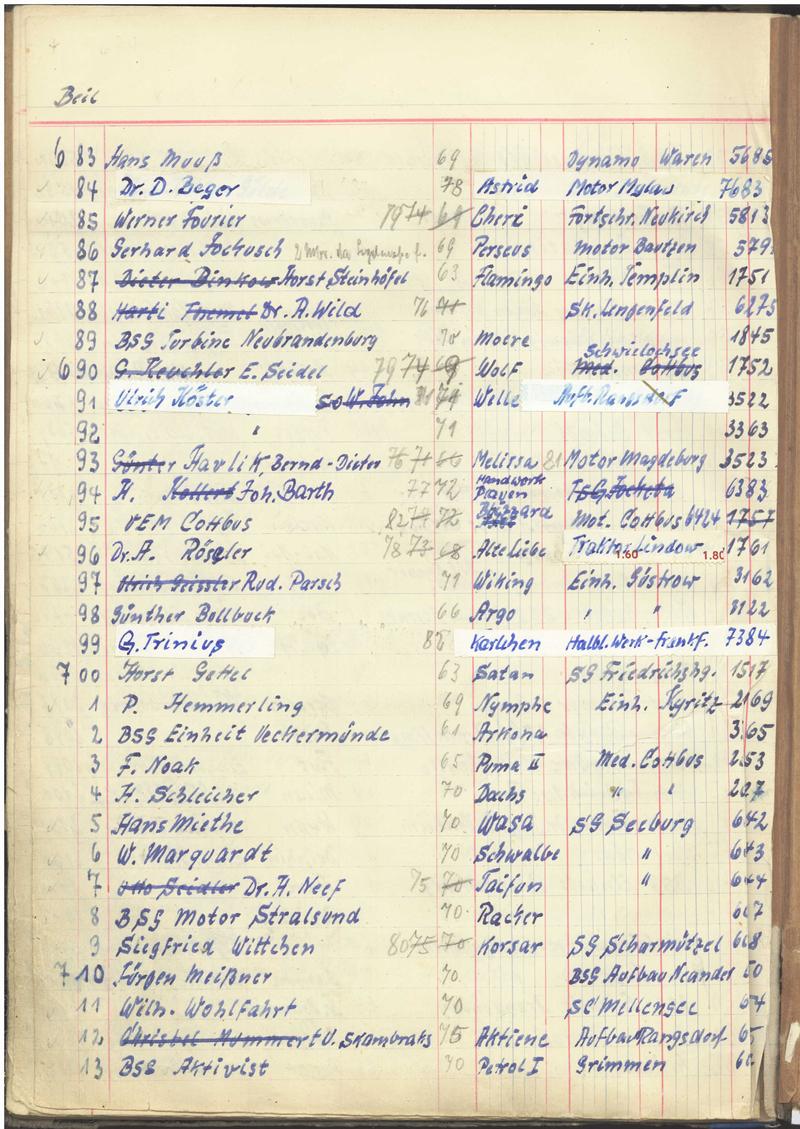 Beil
6 83 Hans Muuß 69 Dynamo Waren 5685
84 Dr. D. Beger 78 Astrid Motor Mylau 7683
85 Werner Fourier 79 74 69 Cheri Fortschr. Neukirch 5813
86 Gerhard Jockusch 69 Perseus Motor Bautzen 579
87 Dieter Binkow Horst Steinhöfel 63 Flamingo Einh. Templin 1751
88 Harti Themel Dr. A. Wild 76 71 SK. Lengenfeld 6275
89 BSG Turbine Neubrandenburg 70 Moere 1845
Schwielochsee
6 90 G. Keuchler E. Seidel 79 74 69 Wolf Med. Cottbus 1752
91 Ulrich Köster W. Jahn 71 Welle Aufb. Rangsdorf 3522
92 " 71 3363
93 Günter Havlik, Bernd-Dieter 76 71 66 Melissa 81 Motor Magdeburg 3523
Handwork
94 H. Kollert Joh. Barth 77 72 Payen TSG Jocketa 6383
95 VEM Cottbus 82 78 72 Blizzard Mot. Cottbus 6424 1757
96 Dr. A. Rösler 78 73 68 Alte Liebe Traktor Lindow 1.60 1.80 1761
97 Ulrich Geissler Rud. Parsch 71 Wiking Einh. Güstrow 3162
98 Günther Bollbuck 66 Argo " " 3122
99 G. Trinius 82 Karlchen Halbl. Werk-Frankf. 7384
7 00 Horst Gettel 63 Satan SG Friedrichshg. 1517
1 P. Hemmerling 69 Nymphe Einh. Kyritz 2169
2 BSG Einheit Ueckermünde 61 Arkona 3165
3 F. Noak 65 Puma II Med. Cottbus 253
4 H. Schleicher 70 Dachs " " 207
5 Hans Miethe 70 Wasa SG Seeburg 642
6 W. Marquardt 70 Schwalbe " 643
7 Otto Seidler Dr. H. Neef 75 70 Taifun " 644
8 BSG Motor Stralsund 70 Racker 667
9 Siegfried Wittchen 80 75 70 Korsar SG Scharmützel 668
7 10 Jürgen Meißner 70 BSG Aufbau Neander 50
11 Wilh. Wohlfahrt 70 SC Mellensee 64
12 Christel Mummert U. Skambraks 75 Aktiene Aufbau Rangsdorf 65
13 BSG Aktivist 70 Petrol I Grimmen 60